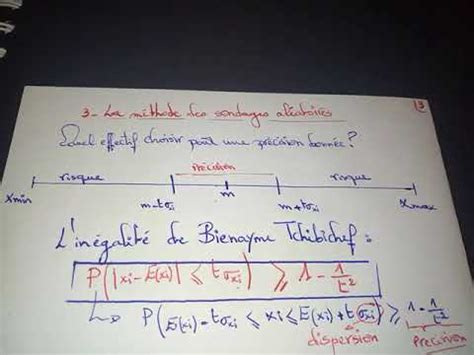 3
3- La méthode des sondages aléatoires
Quel effectif choisir pour une précision donnée?
risque précision risque
Xmin m-tσxi m m+tσxi Xmax
L'inégalité de Bienayme Tchibichef :
P(|xi-E(xi)| ≤ tσxi) ≥ 1 - 1/t²
↳ P(E(xi)-tσxi ≤ xi ≤ E(xi)+tσxi) ≥ 1 - 1/t²
dispersion précision